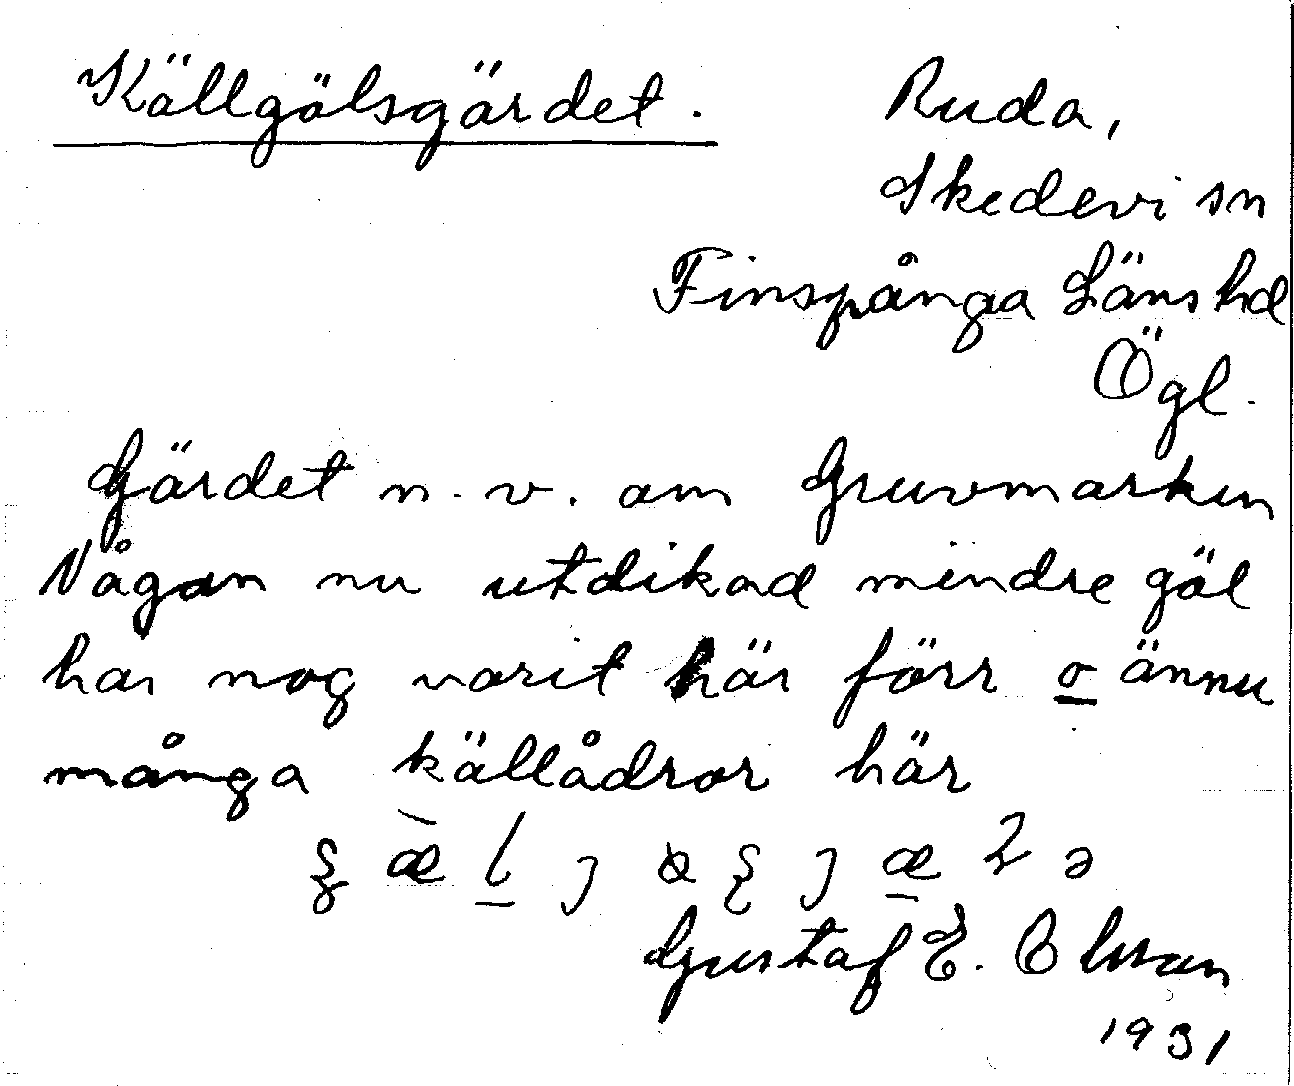 Källgölsgärdet. Ruda,
Skedevi sn
Finspånga Läns hd
Ögl.
Gärdet n. v. om Gruvmarken
Någon nu utdikad mindre göl
har nog varit här förr o ännu
många källådror här
Gustaf E. Olsson
1931